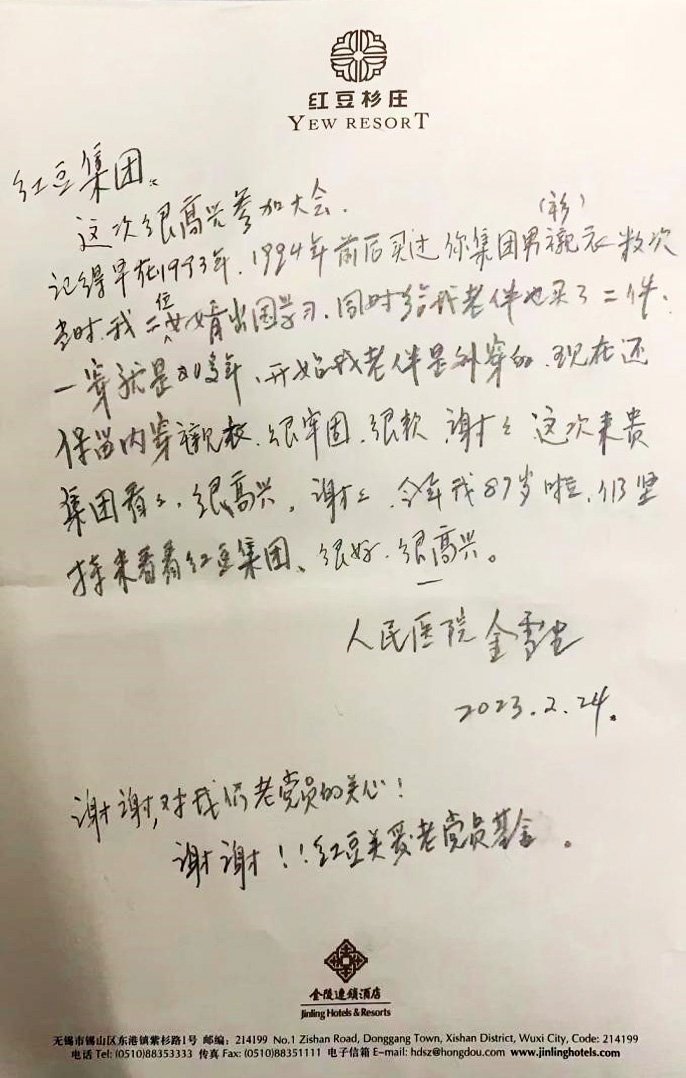 红豆杉庄
YEW RESORT
红豆集团:
这次很高兴参加大会.
(衫)
记得早在1993年.1994年前后买过你集团男衬衣数次
位
当时.我二女婿出国学习.同时给我老伴也买了二件.
一穿就是20多年.开始我老伴是外穿的.现在还
保留内穿.很牢固.很软.谢谢.这次来贵
集团看看.很高兴.谢谢.今年我87岁啦.仍坚
持来看看红豆集团、很好.很高兴。
人民医院 金雪
2023.2.24.
谢谢,对我们老党员的关心!
谢谢!!红豆关爱老党员基金。
金陵连锁酒店
Jinling Hotels & Resorts
无锡市锡山区东港镇紫杉路1号 邮编: 214199 No.1 Zishan Road, Donggang Town, Xishan District, Wuxi City, Code: 214199
电话 Tel: (0510)88353333 传真 Fax: (0510)88351111 电子信箱 E-mail: hdsz@hongdou.com www.jinlinghotels.com